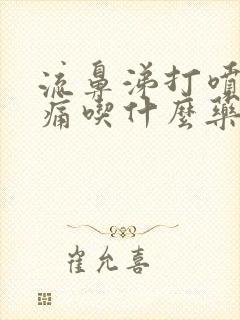 流鼻涕打噴
痛喫什麼藥
崔允喜